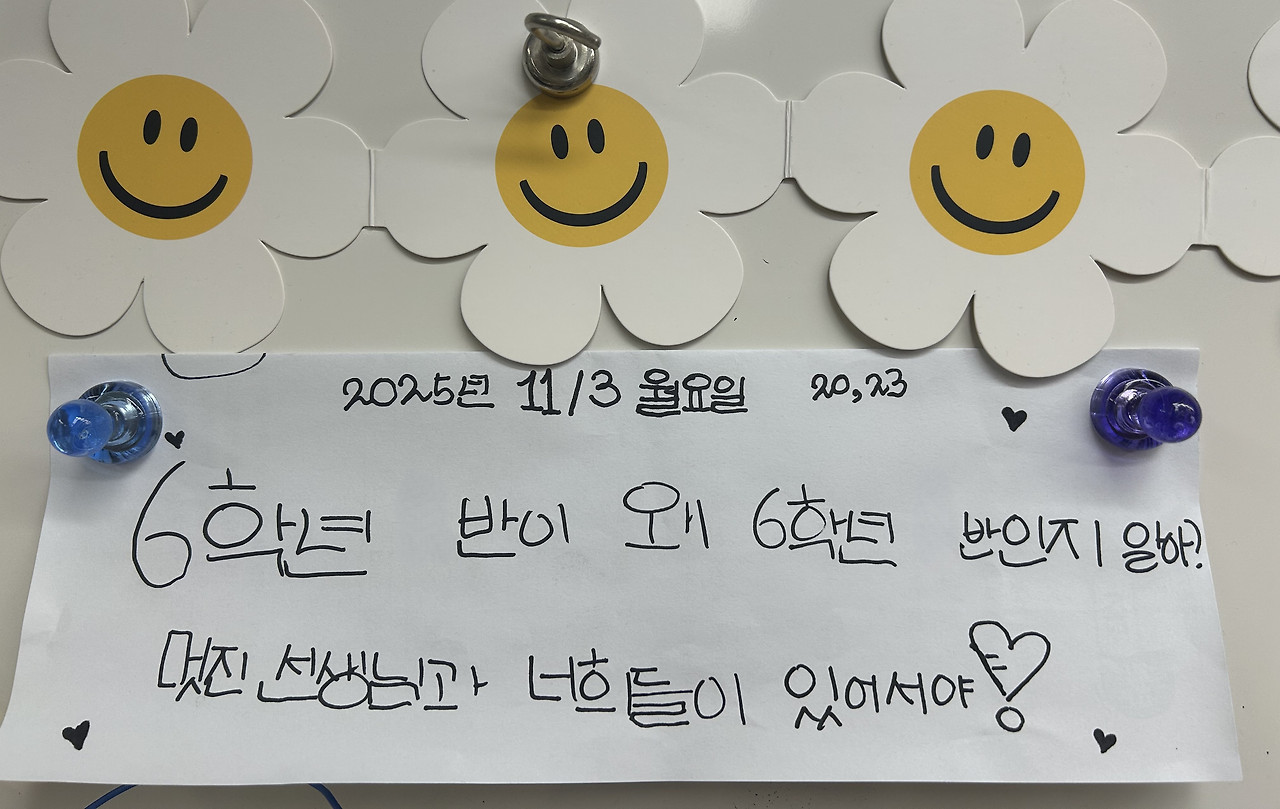 2025년 11/3 월요일 20,23
6학년 반이 왜 6학년 반인지 알아?
멋진 선생님과 너희들이 있어서야